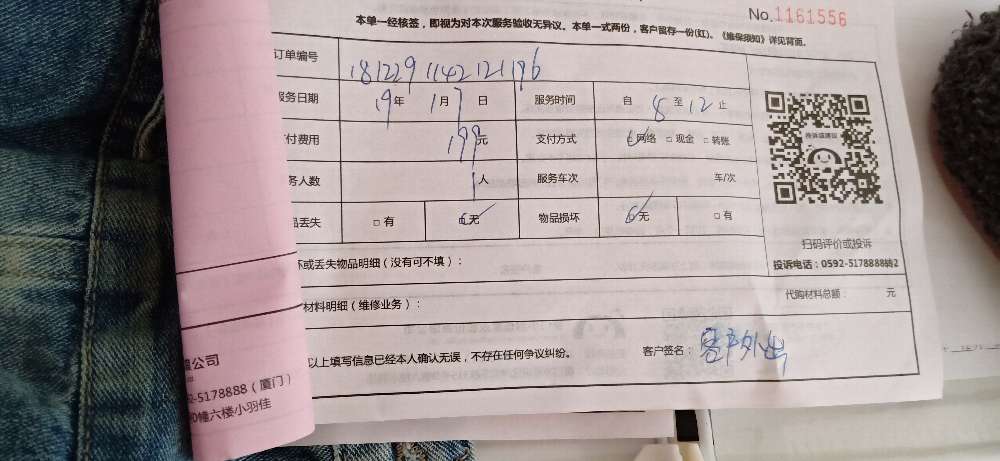 No.1161556
本单一经核签，即视为对本次服务验收无异议。本单一式两份，客户留存一份(红)。《维保须知》详见背面。
订单编号 1812291142121196
服务日期 19年 1月7日 服务时间 自 8 至 12 止
付费用 199元 支付方式 网络 □ 现金 □ 转账
务人数 1人 服务车次 车/次
品丢失 □ 有 无 物品损坏 无 □ 有
扫码评价或投诉
投诉电话：0592-5178888转2
坏或丢失物品明细（没有可不填）：
材料明细（维修业务）： 代购材料总额： 元
以上填写信息已经本人确认无误，不存在任何争议纠纷。 客户签名： 客户外出
公司
2-5178888（厦门）
0幢六楼小羽佳